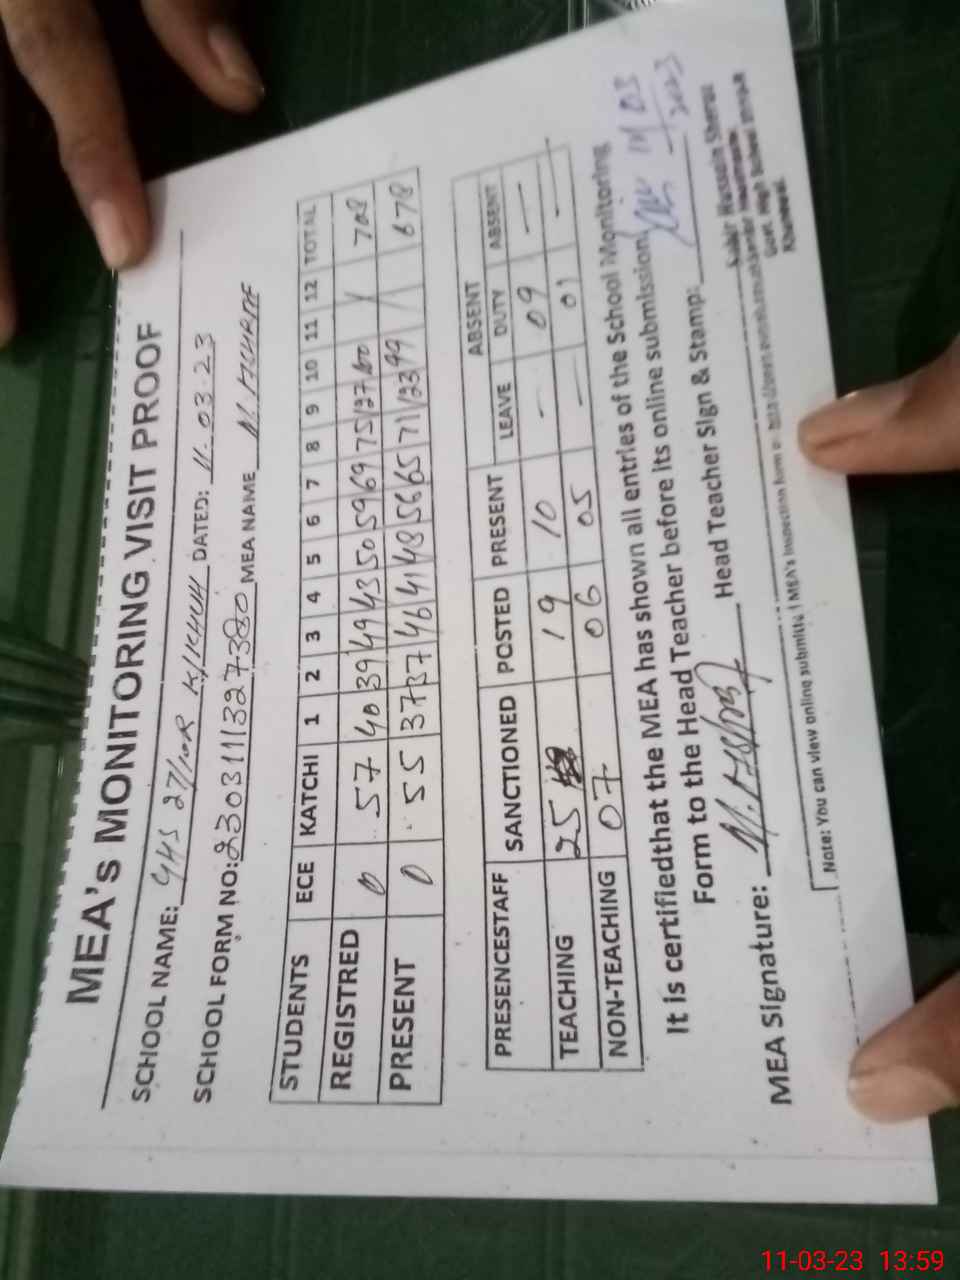 MEA's MONITORING VISIT PROOF
SCHOOL NAME: GHS 27/10R K/KHUH DATED: 11.03.23
SCHOOL FORM NO: 2303111327380 MEA NAME M.
STUDENTS ECE KATCHI 1 2 3 4 5 6 7 8 9 10 11 12 TOTAL
REGISTRED 0 57 40 39 49 43 50 59 69 75 127 100 / 708
PRESENT 0 55 37 37 46 41 48 56 65 71 123 99 / 678
ABSENT
PRESENCESTAFF SANCTIONED POSTED PRESENT LEAVE DUTY ABSENT
TEACHING 25 19 10 — 09 —
NON-TEACHING 07 06 05 — 01 —
It is certifiedthat the MEA has shown all entries of the School Monitoring
Form to the Head Teacher before its online submission
MEA Signature: Head Teacher Sign & Stamp:
Note: You can view online submitte
11-03-23 13:59